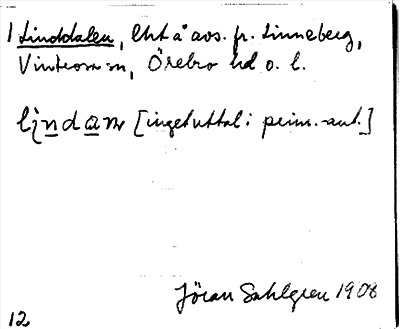 1 Linddalen, lht å avs. fr. Linneberg,
Vintrosa sn, Örebro hd o. l.
lindam [inget uttal i prim.-ant.]
Jöran Sahlgren 1908
12